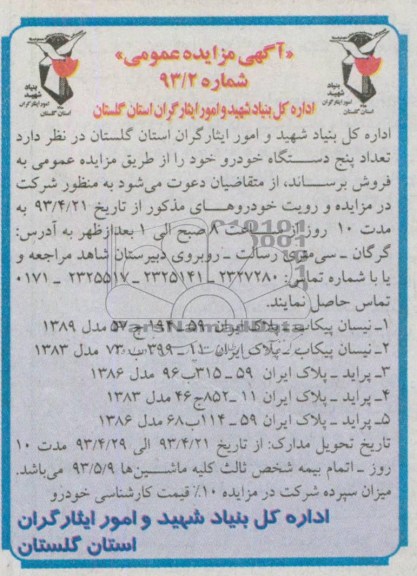 «آگهی مزایده عمومی»
شماره ۹۳/۲
اداره کل بنیاد شهید و امور ایثارگران استان گلستان
بنیاد شهید
امور ایثارگران
استان گلستان
بنیاد شهید
امور ایثارگران
استان گلستان
اداره کل بنیاد شهید و امور ایثارگران استان گلستان در نظر دارد
تعداد پنج دستگاه خودرو خود را از طریق مزایده عمومی به
فروش برساند، از متقاضیان دعوت می‌شود به منظور شرکت
در مزایده و رویت خودروهای مذکور از تاریخ ۹۳/۴/۲۱ به
مدت ۱۰ روز از ساعت ۸ صبح الی ۱ بعدازظهر به آدرس:
گرگان ـ سی‌متری رسالت ـ روبروی دبیرستان شاهد مراجعه و
یا با شماره تماس: ۲۳۲۷۲۸۰ ـ ۲۳۲۵۱۴۱ ـ ۲۳۲۵۵۱۷ ـ ۰۱۷۱
تماس حاصل نمایند.
۱ـ نیسان پیکاپ ـ پلاک ایران ۵۹ ـ ۱۹۴ج۵۷ مدل ۱۳۸۹
۲ـ نیسان پیکاب ـ پلاک ایران ۱۱ ـ ۳۹۹ب۷۳ مدل ۱۳۸۳
۳ـ پراید ـ پلاک ایران ۵۹ ـ ۳۱۵ب۹۶ مدل ۱۳۸۶
۴ـ پراید ـ پلاک ایران ۱۱ ـ۸۵۲ج۴۶ مدل ۱۳۸۳
۵ـ پراید ـ پلاک ایران ۵۹ ـ ۱۱۴ب۶۸ مدل ۱۳۸۶
تاریخ تحویل مدارک: از تاریخ ۹۳/۴/۲۱ الی ۹۳/۴/۲۹ مدت ۱۰
روز ـ اتمام بیمه شخص ثالث کلیه ماشین‌ها ۹۳/۵/۹ می‌باشد.
میزان سپرده شرکت در مزایده ۱۰٪ قیمت کارشناسی خودرو
اداره کل بنیاد شهید و امور ایثارگران
استان گلستان